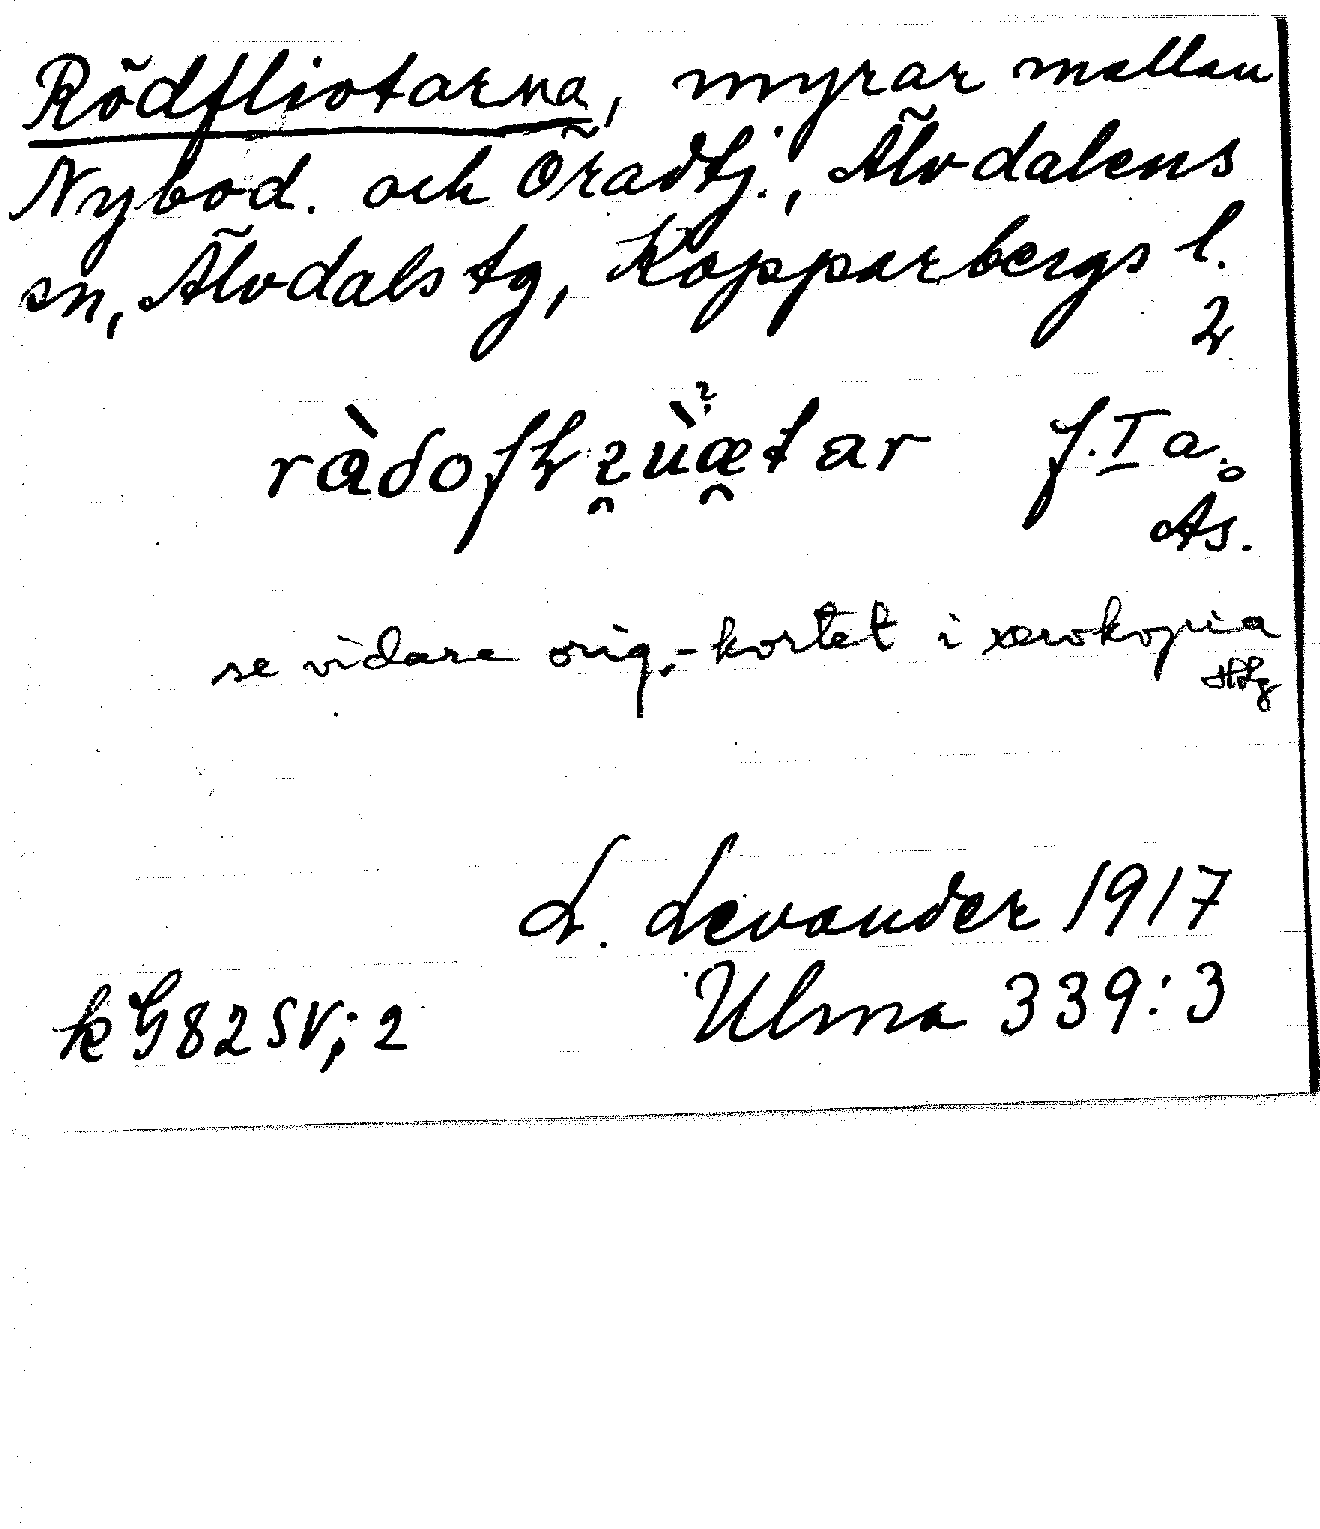 Rödfliotarna, myrar mellan
Nybod. och Öradtj., Älvdalens
sn, Älvdals tg, Kopparbergs l.
2
f. I a.
Ås.
se vidare orig.-kortet i xerokopia
L. Levander 1917
Ulma 339:3
k G82 SV; 2